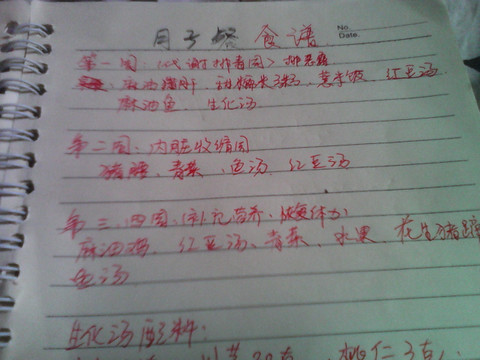 月子餐 食谱
No.
Date.
第一周:(代谢排毒周) 排恶露
麻油猪肝、糯米粥、薏米饭、红豆汤
麻油鱼、生化汤
第二周、内脏收缩周
猪腰、青菜、鱼汤、红豆汤
第三、四周、补记营养、恢复体力
麻油鸡、红豆汤、青菜、水果、花生猪蹄
鱼汤
生化汤配料:
桃仁3克